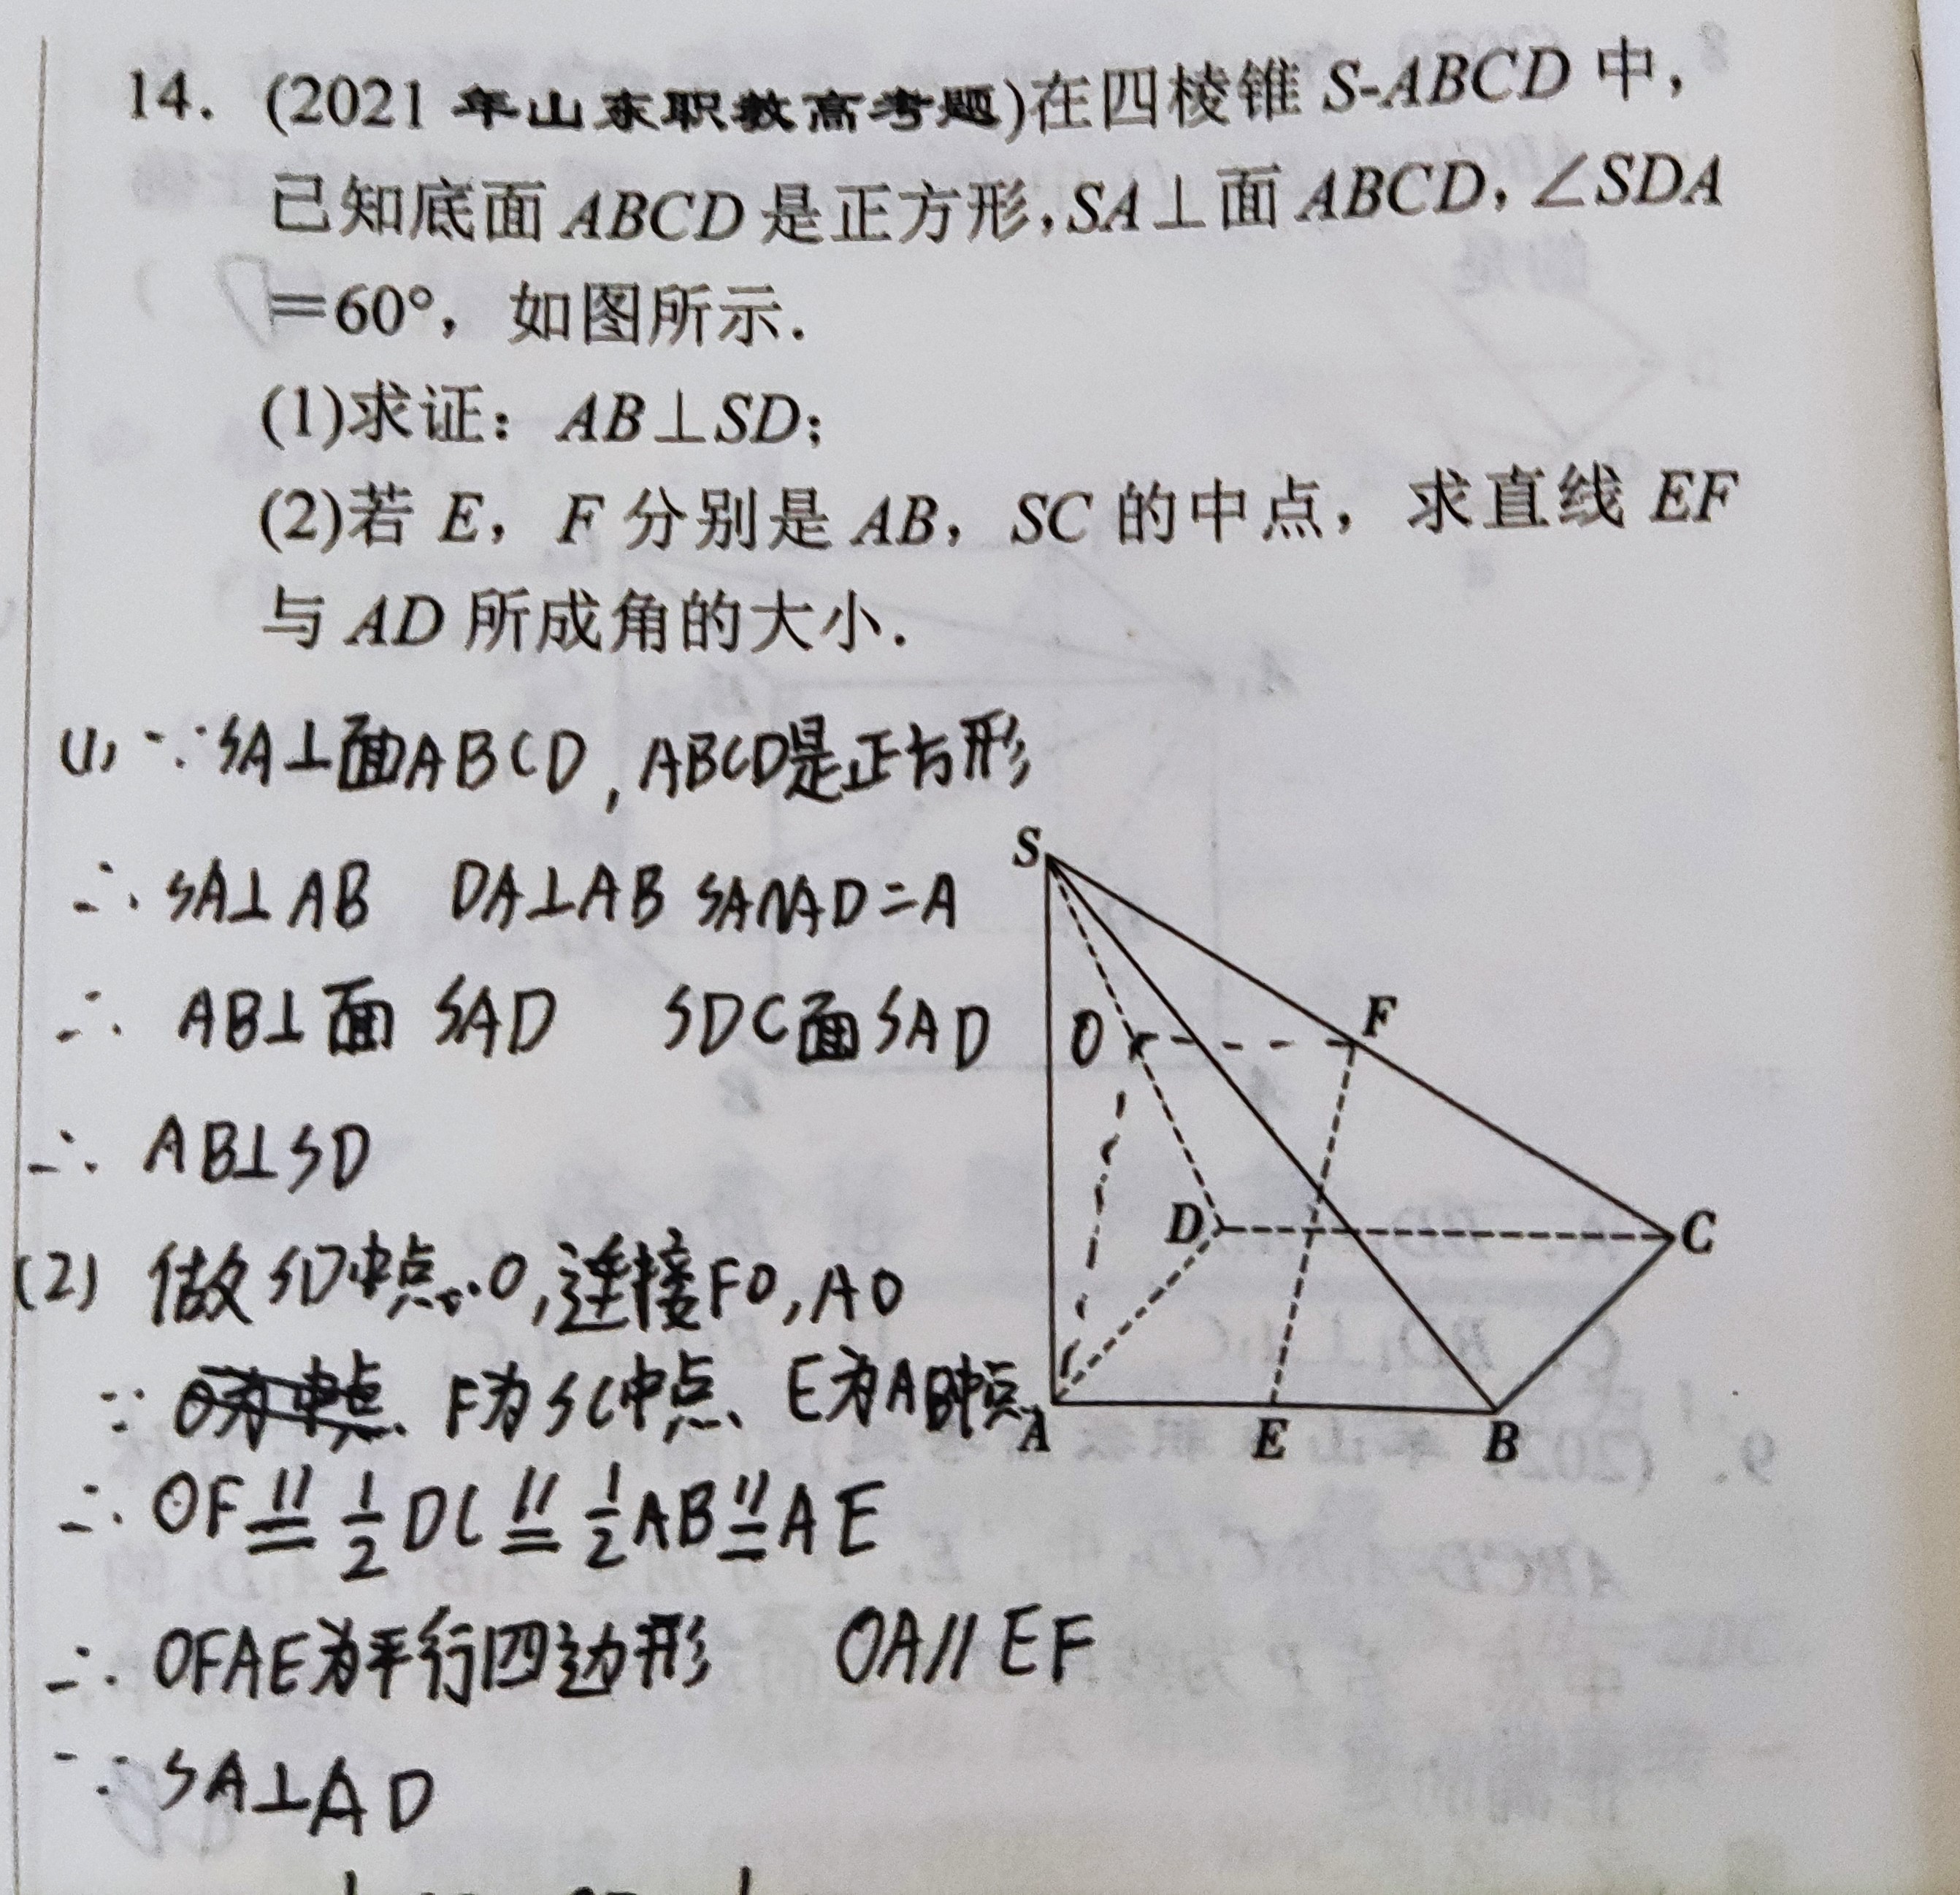 14. (2021 年山东职教高考题)在四棱锥 S-ABCD 中，
已知底面 ABCD 是正方形,SA⊥面 ABCD，∠SDA
=60°，如图所示.
(1)求证：AB⊥SD；
(2)若 E，F 分别是 AB，SC 的中点，求直线 EF
与 AD 所成角的大小.
(1) ∵ SA⊥面ABCD , ABCD是正方形
∴ SA⊥AB DA⊥AB SA∩AD=A
∴ AB⊥面 SAD SD⊂面SAD
∴ AB⊥SD
(2) 做SD中点O,连接FO,AO
∵ F为SC中点、E为AB中点
∴ OF∥= 1/2 DC ∥= 1/2 AB ∥= AE
∴ OFAE为平行四边形 OA∥EF
∵ SA⊥AD
S
O
F
D
C
A
E
B